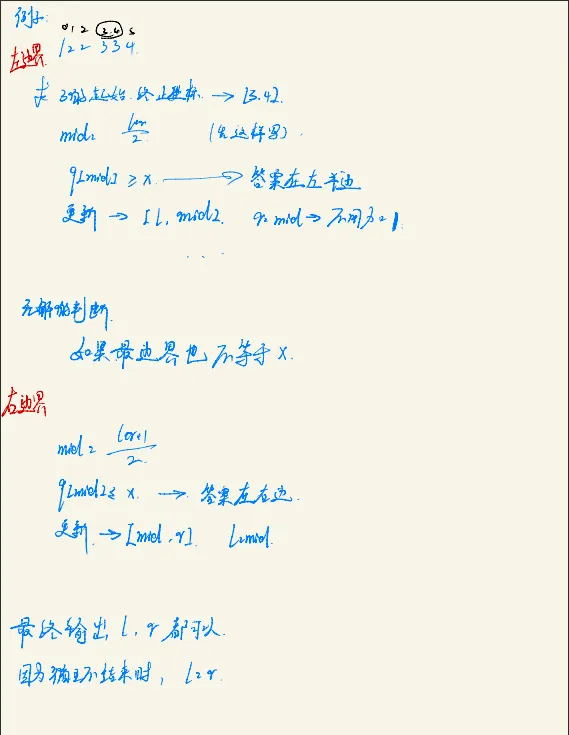 例子:
0 1 2 3.4 5
左边界 1 2 2 3 3 4.
求 3的起始.终止坐标. → [3.4].
mid = l+r/2 (先这样写).
q[mid] ≥ x. → 答案在左半边
更新 → [l, mid]. r = mid → 不用加 = 1.
. . .
无解的判断.
如果最边界也不等于 x.
右边界
mid = l+r+1/2
q[mid] ≤ x. → 答案在右边.
更新. → [mid, r]. l = mid.
最终输出 l, r 都可以.
因为循环结束时, l = r.